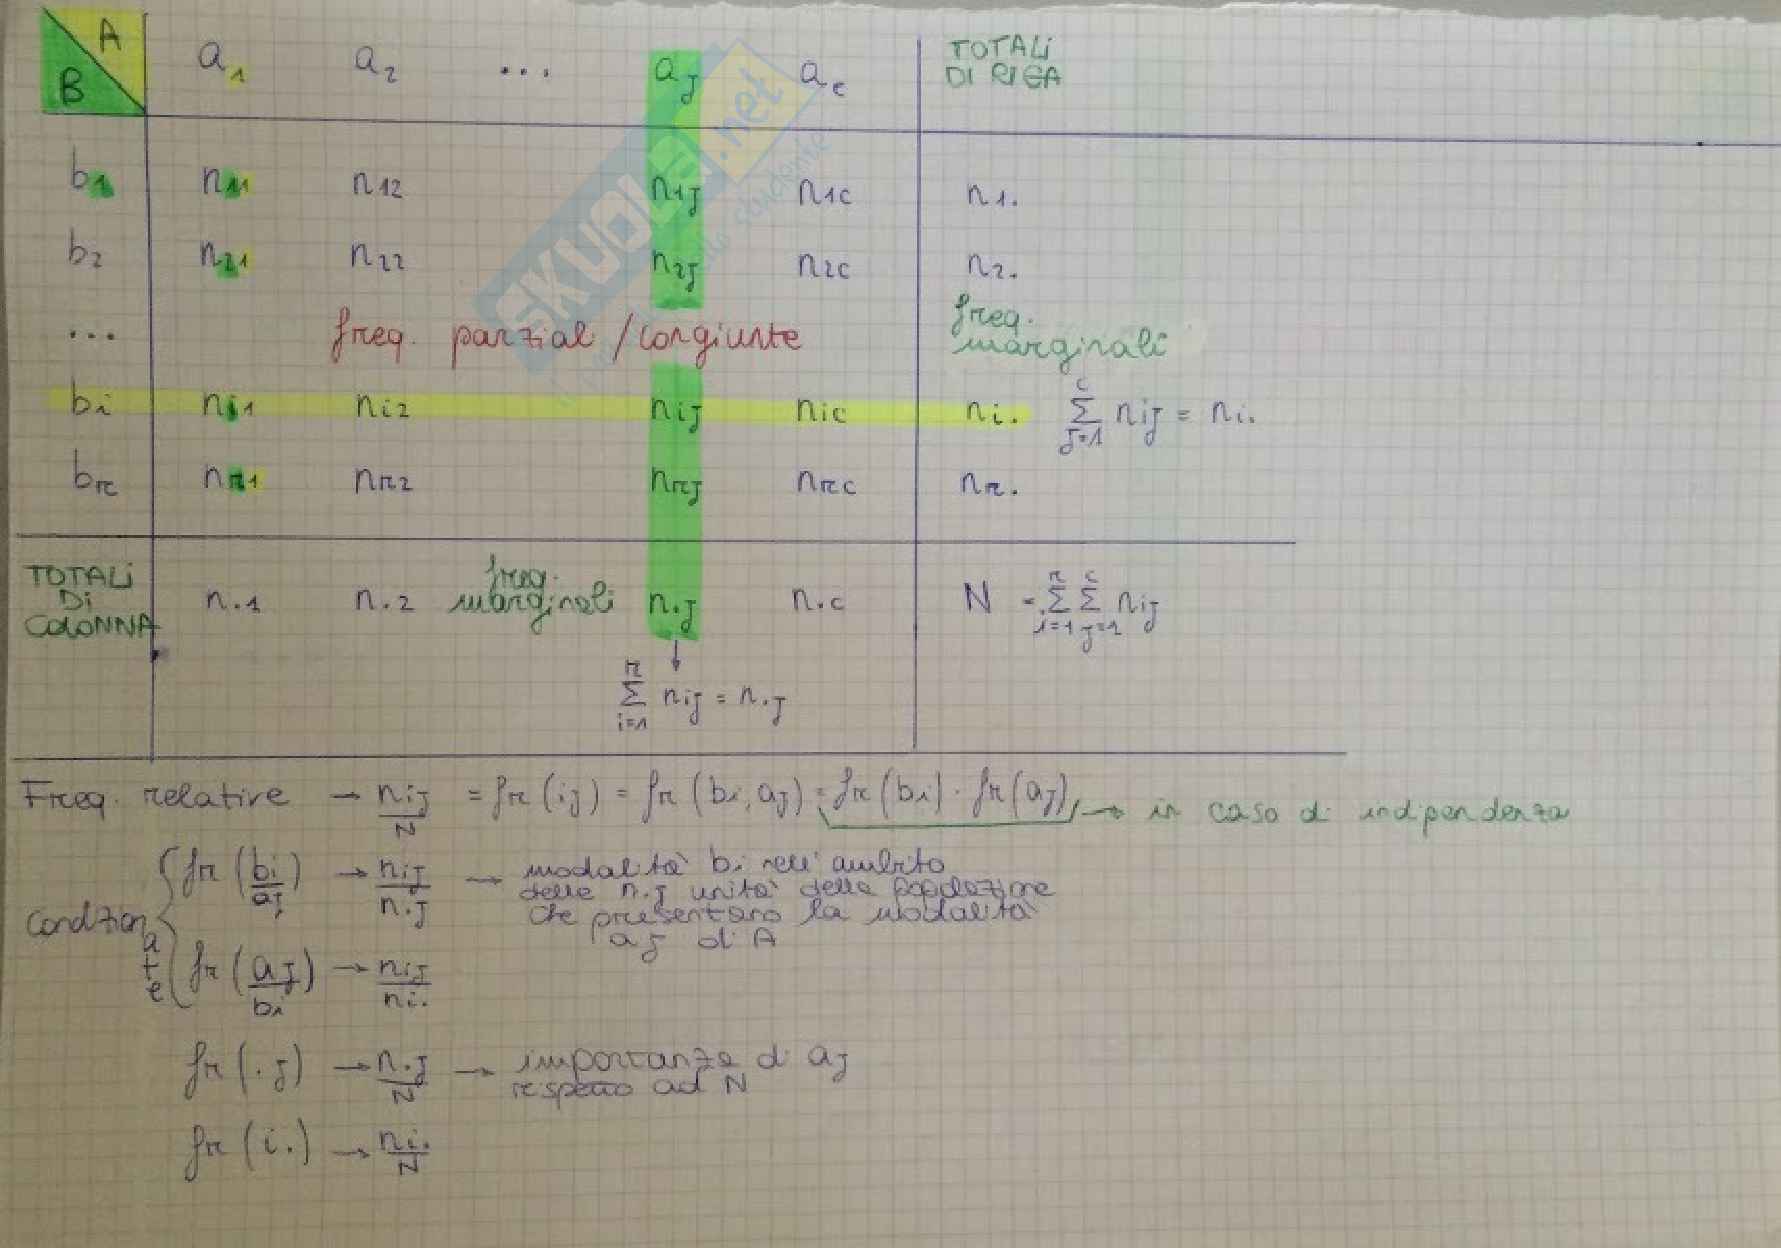 A
B
a1 a2 ... aj ac TOTALI DI RIGA
b1 n11 n12 n1j n1c n1.
b2 n21 n22 n2j n2c n2.
... freq. parzial / congiunte freq. marginali
bi ni1 ni2 nij nic ni. c Σ j=1 nij = ni.
br nr1 nr2 nrj nrc nr.
TOTALI DI COLONNA n.1 n.2 freq. marginali n.j n.c N = r Σ i=1 c Σ j=1 nij
↓
r Σ i=1 nij = n.j
Freq. relative → nij/N = fr (ij) = fr (bi, aj) = fr (bi) · fr (aj) → in caso di indipendenza
Condizionate
fr (bi/aj) → nij/n.j → modalità bi nell'ambito
delle n.j unità della popolazione
che presentano la modalità
aj di A
fr (aj/bi) → nij/ni.
fr (.j) → n.j/N → importanza di aj
rispetto ad N
fr (i.) → ni./N
SKUOLA.net